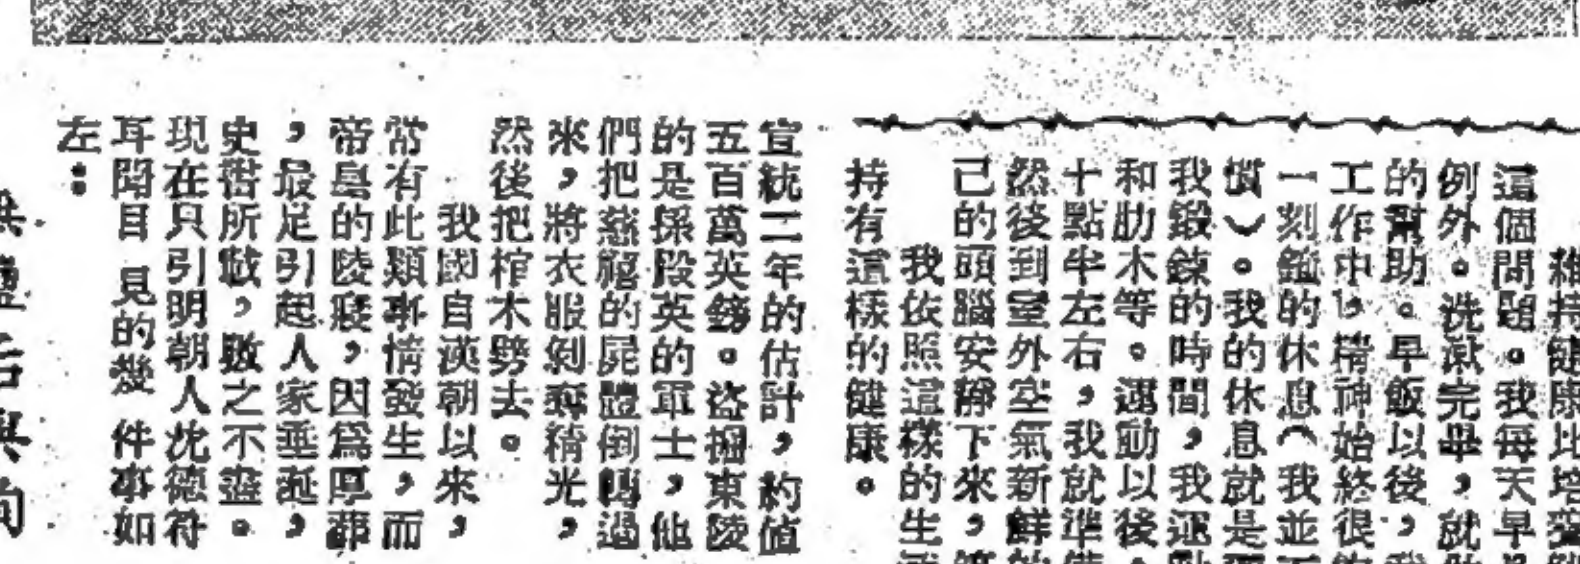 維持健康比培養
這個問題。我每天早
例外。洗漱完畢，就
的幫助。早飯以後，我
工作中，精神始終很
一刻鐘的休息（我並不
慣）。我的休息就是運
我鍛鍊的時間，我運動
和肋木等。運動以後，
十點半左右，我就準備
然後到室外空氣新鮮的
己的頭腦安靜下來，
我依照這樣的生活
持有這樣的健康。
宣統二年的估計，約值
五百萬英鎊。盜掘東陵
的是孫殿英的軍士，他
們把慈禧的屍體倒轉過
來，將衣服剝奪精光，
然後把棺木劈去。
我國自漢朝以來，
常有此類事情發生，而
帝皇的陵寢，因為厚葬
，最足引起人家垂涎，
史書所載，數之不盡。
現在只引明朝人沈德符
耳聞目見的幾件事如
左：